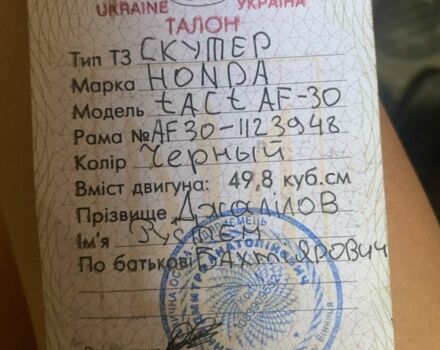 UKRAINE УКРАЇНА
ТАЛОН
Тип ТЗ СКУТЕР
Марка HONDA
Модель tACt AF-30
Рама № AF30-1123948
Колір Черный
Вміст двигуна: 49,8 куб.см
Прізвище Джалілов
Ім'я
По батькові БАХТІЯРОВИЧ